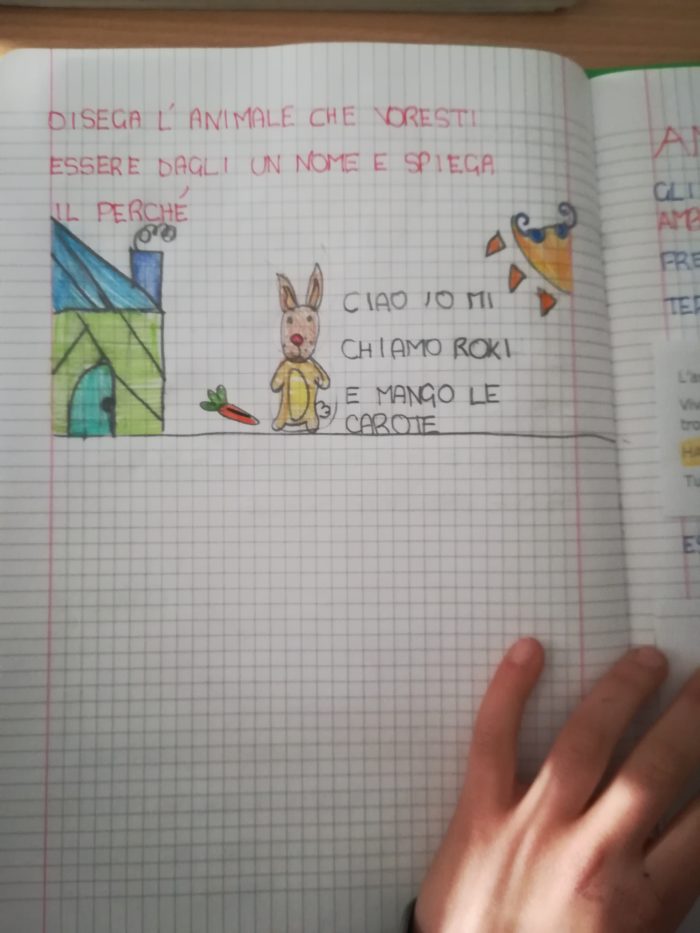 DISEGA L' ANIMALE CHE VORESTI
ESSERE DAGLI UN NOME E SPIEGA
IL PERCHÉ
CIAO IO MI
CHIAMO ROKI
E MANGO LE
CAROTE
GLI
FRE
TER
L'a
Viv
tro
Tu